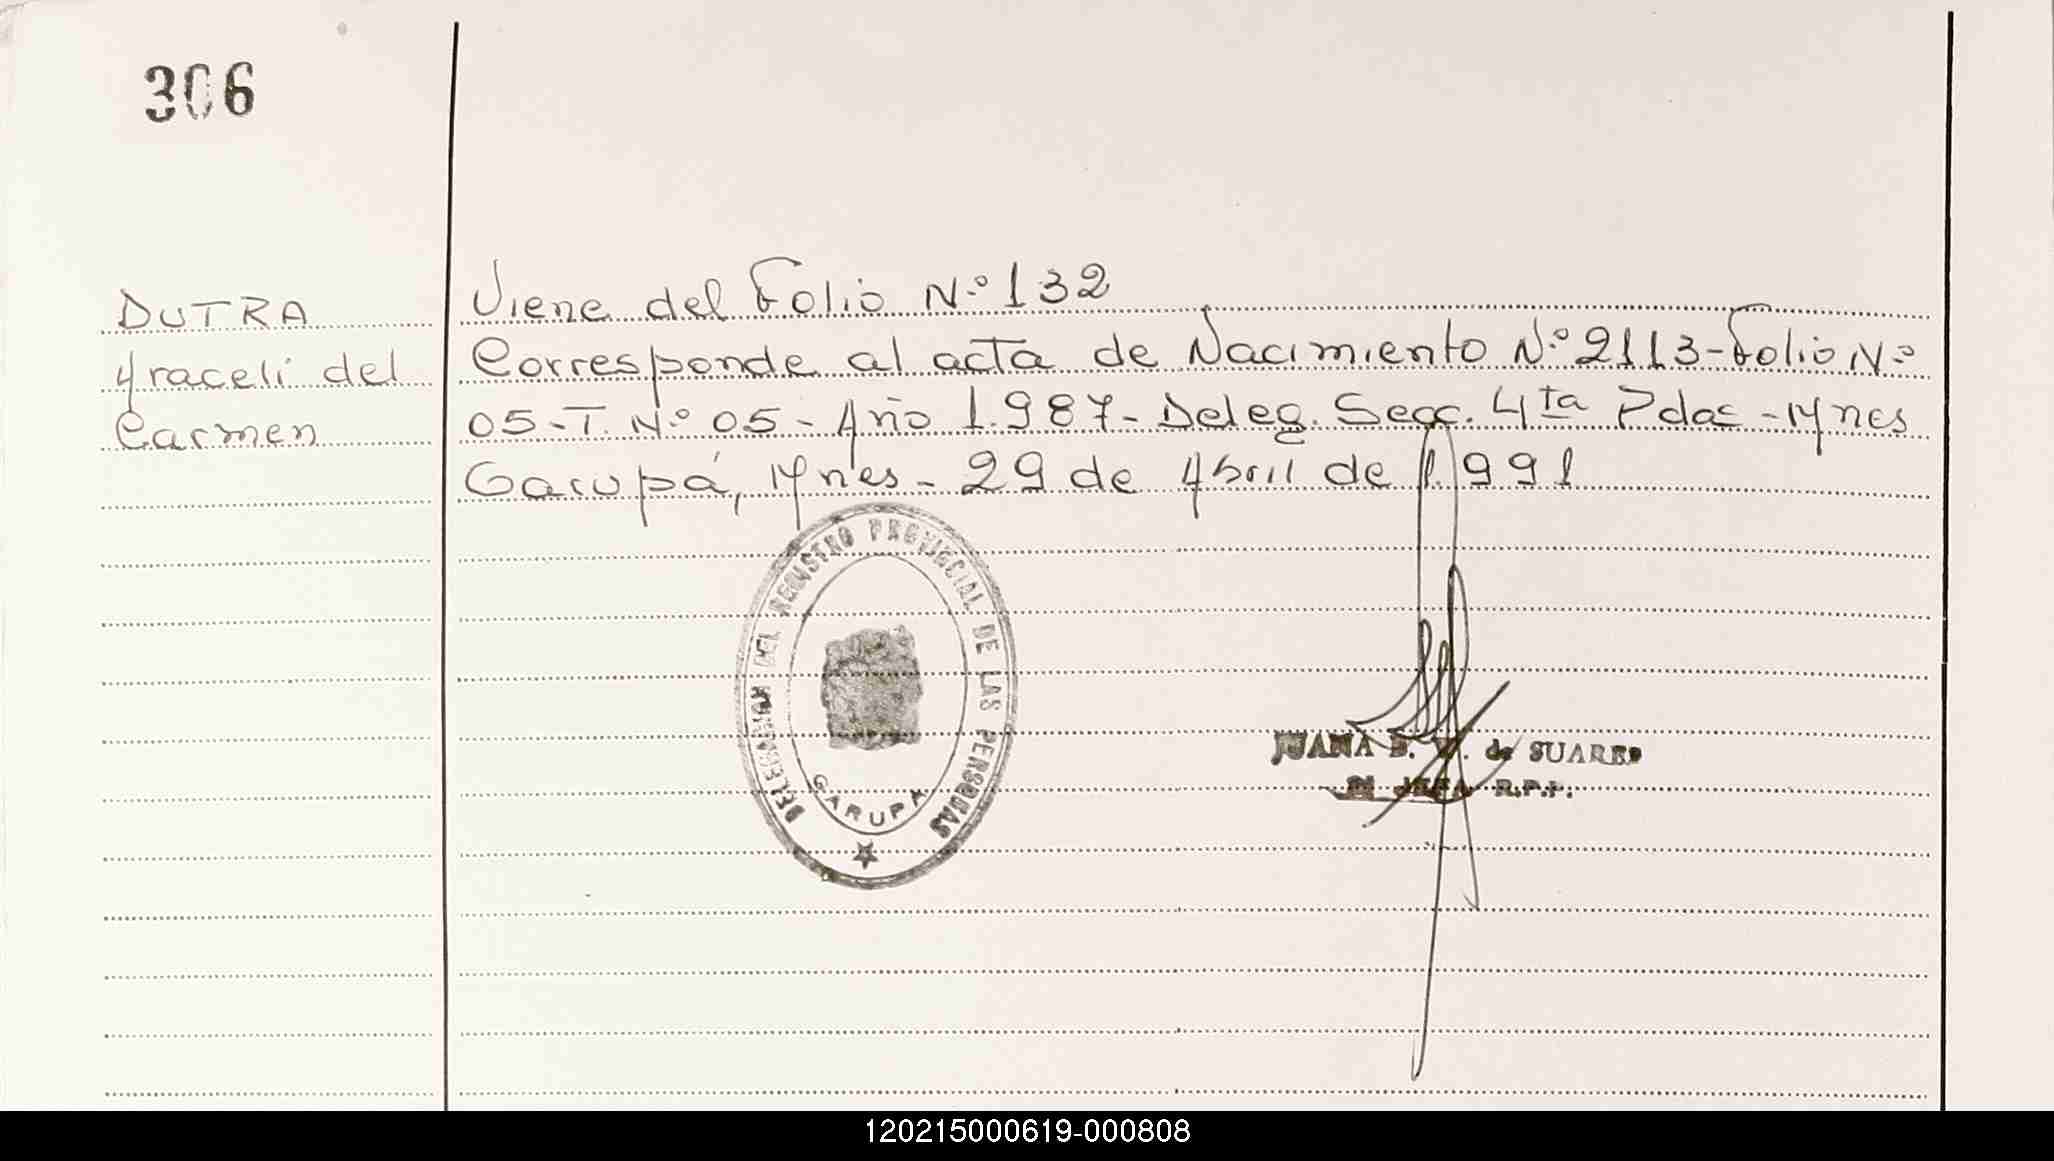 306
DUTRA
Araceli del
Carmen
Viene del Folio Nº 132
Corresponde al acta de Nacimiento Nº 2113-Folio Nº
05-T. Nº 05- Año 1.987- Deleg. Secc. 4ta Pdas-Mnes
Garupá, Mnes- 29 de Abril de 1.991
DELEGACION DEL REGISTRO PROVINCIAL DE LAS PERSONAS
GARUPA
JUANA de SUAREZ
JEFA R.P.P.
120215000619-000808